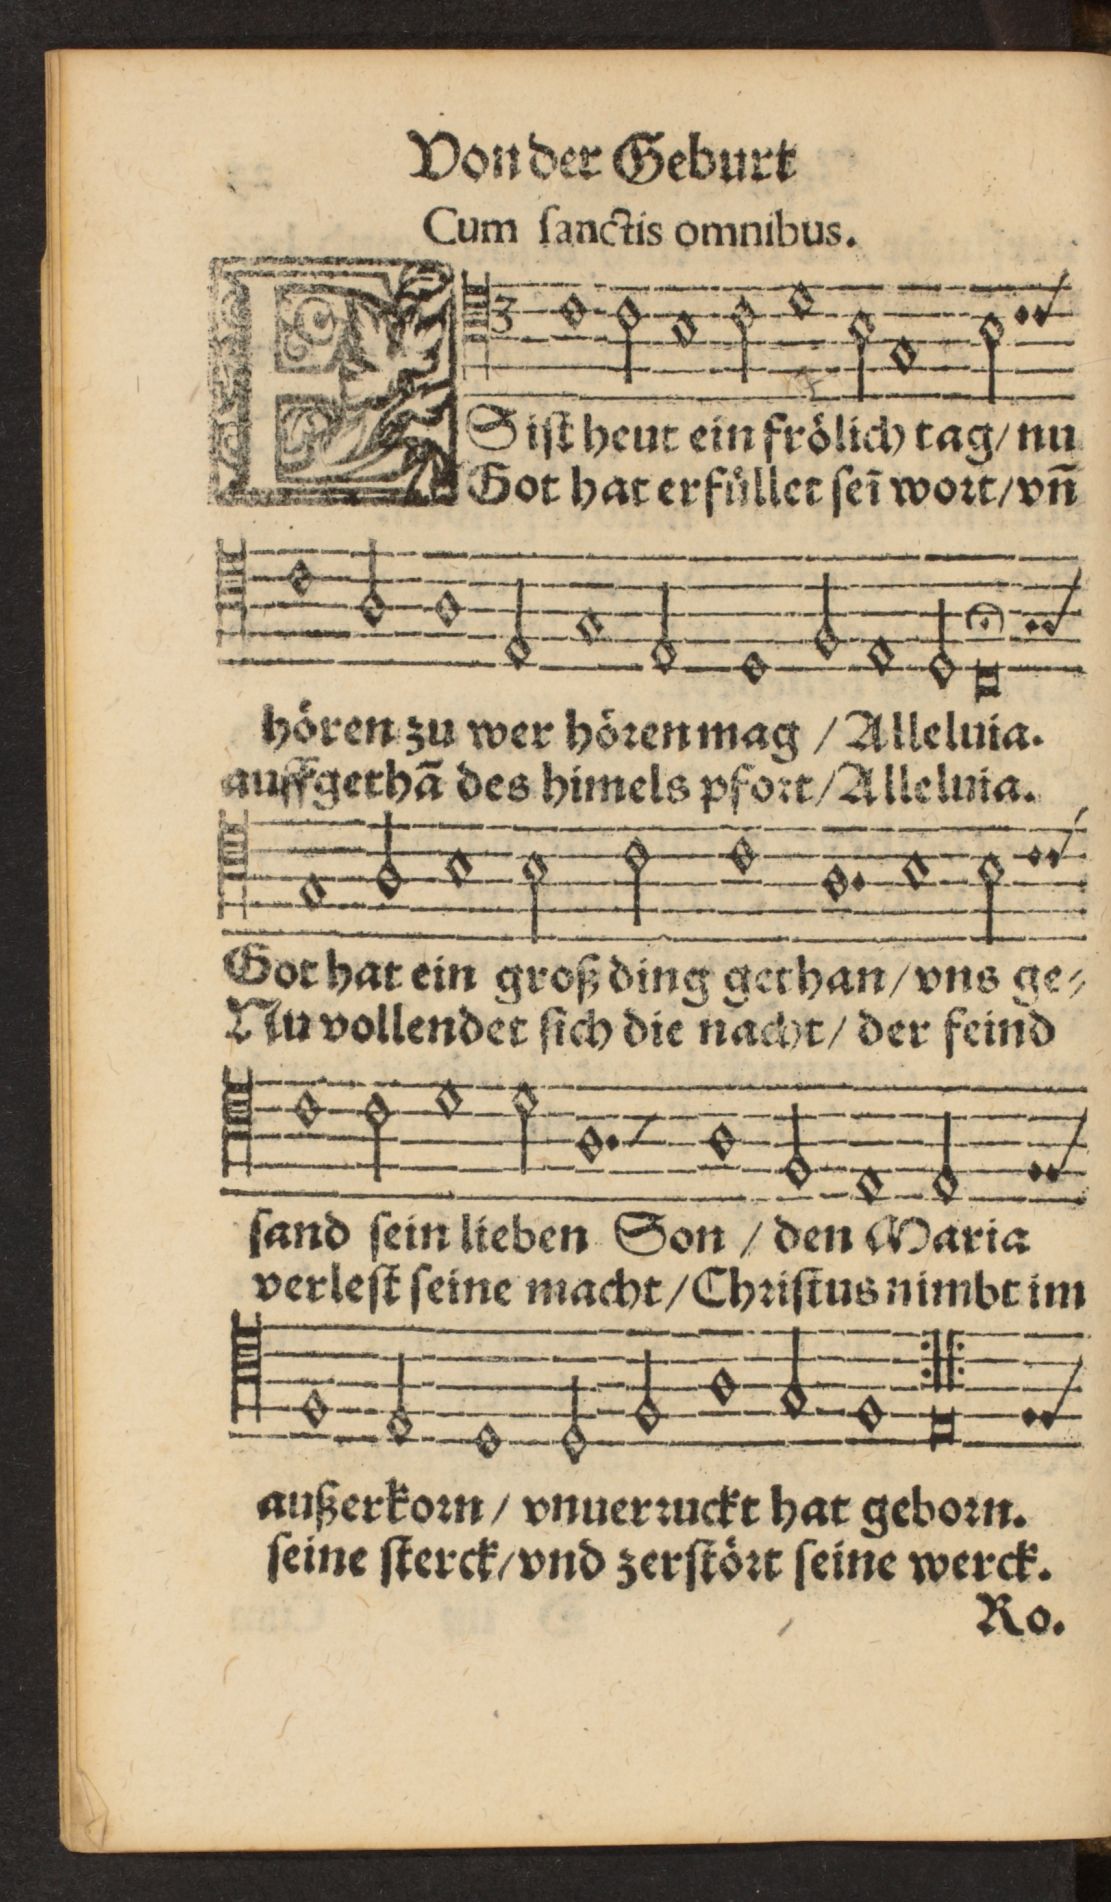 Von der Geburt
Cum ſanctis omnibus.
ES iſt heut ein frölich tag/ nu
Got hat erfüllet ſeī wort/ vn̄
hören zu wer hören mag / Alleluia.
auffgethā des himels pfort/ Alleluia.
Got hat ein groß ding gethan/ vns ge⸗
Nu vollendet ſich die nacht/ der feind
ſand ſein lieben Son / den Maria
verleſt ſeine macht/ Chriſtus nimbt im
außerkorn / vnuerruckt hat geborn.
ſeine ſterck/ vnd zerſtört ſeine werck.
Ro.